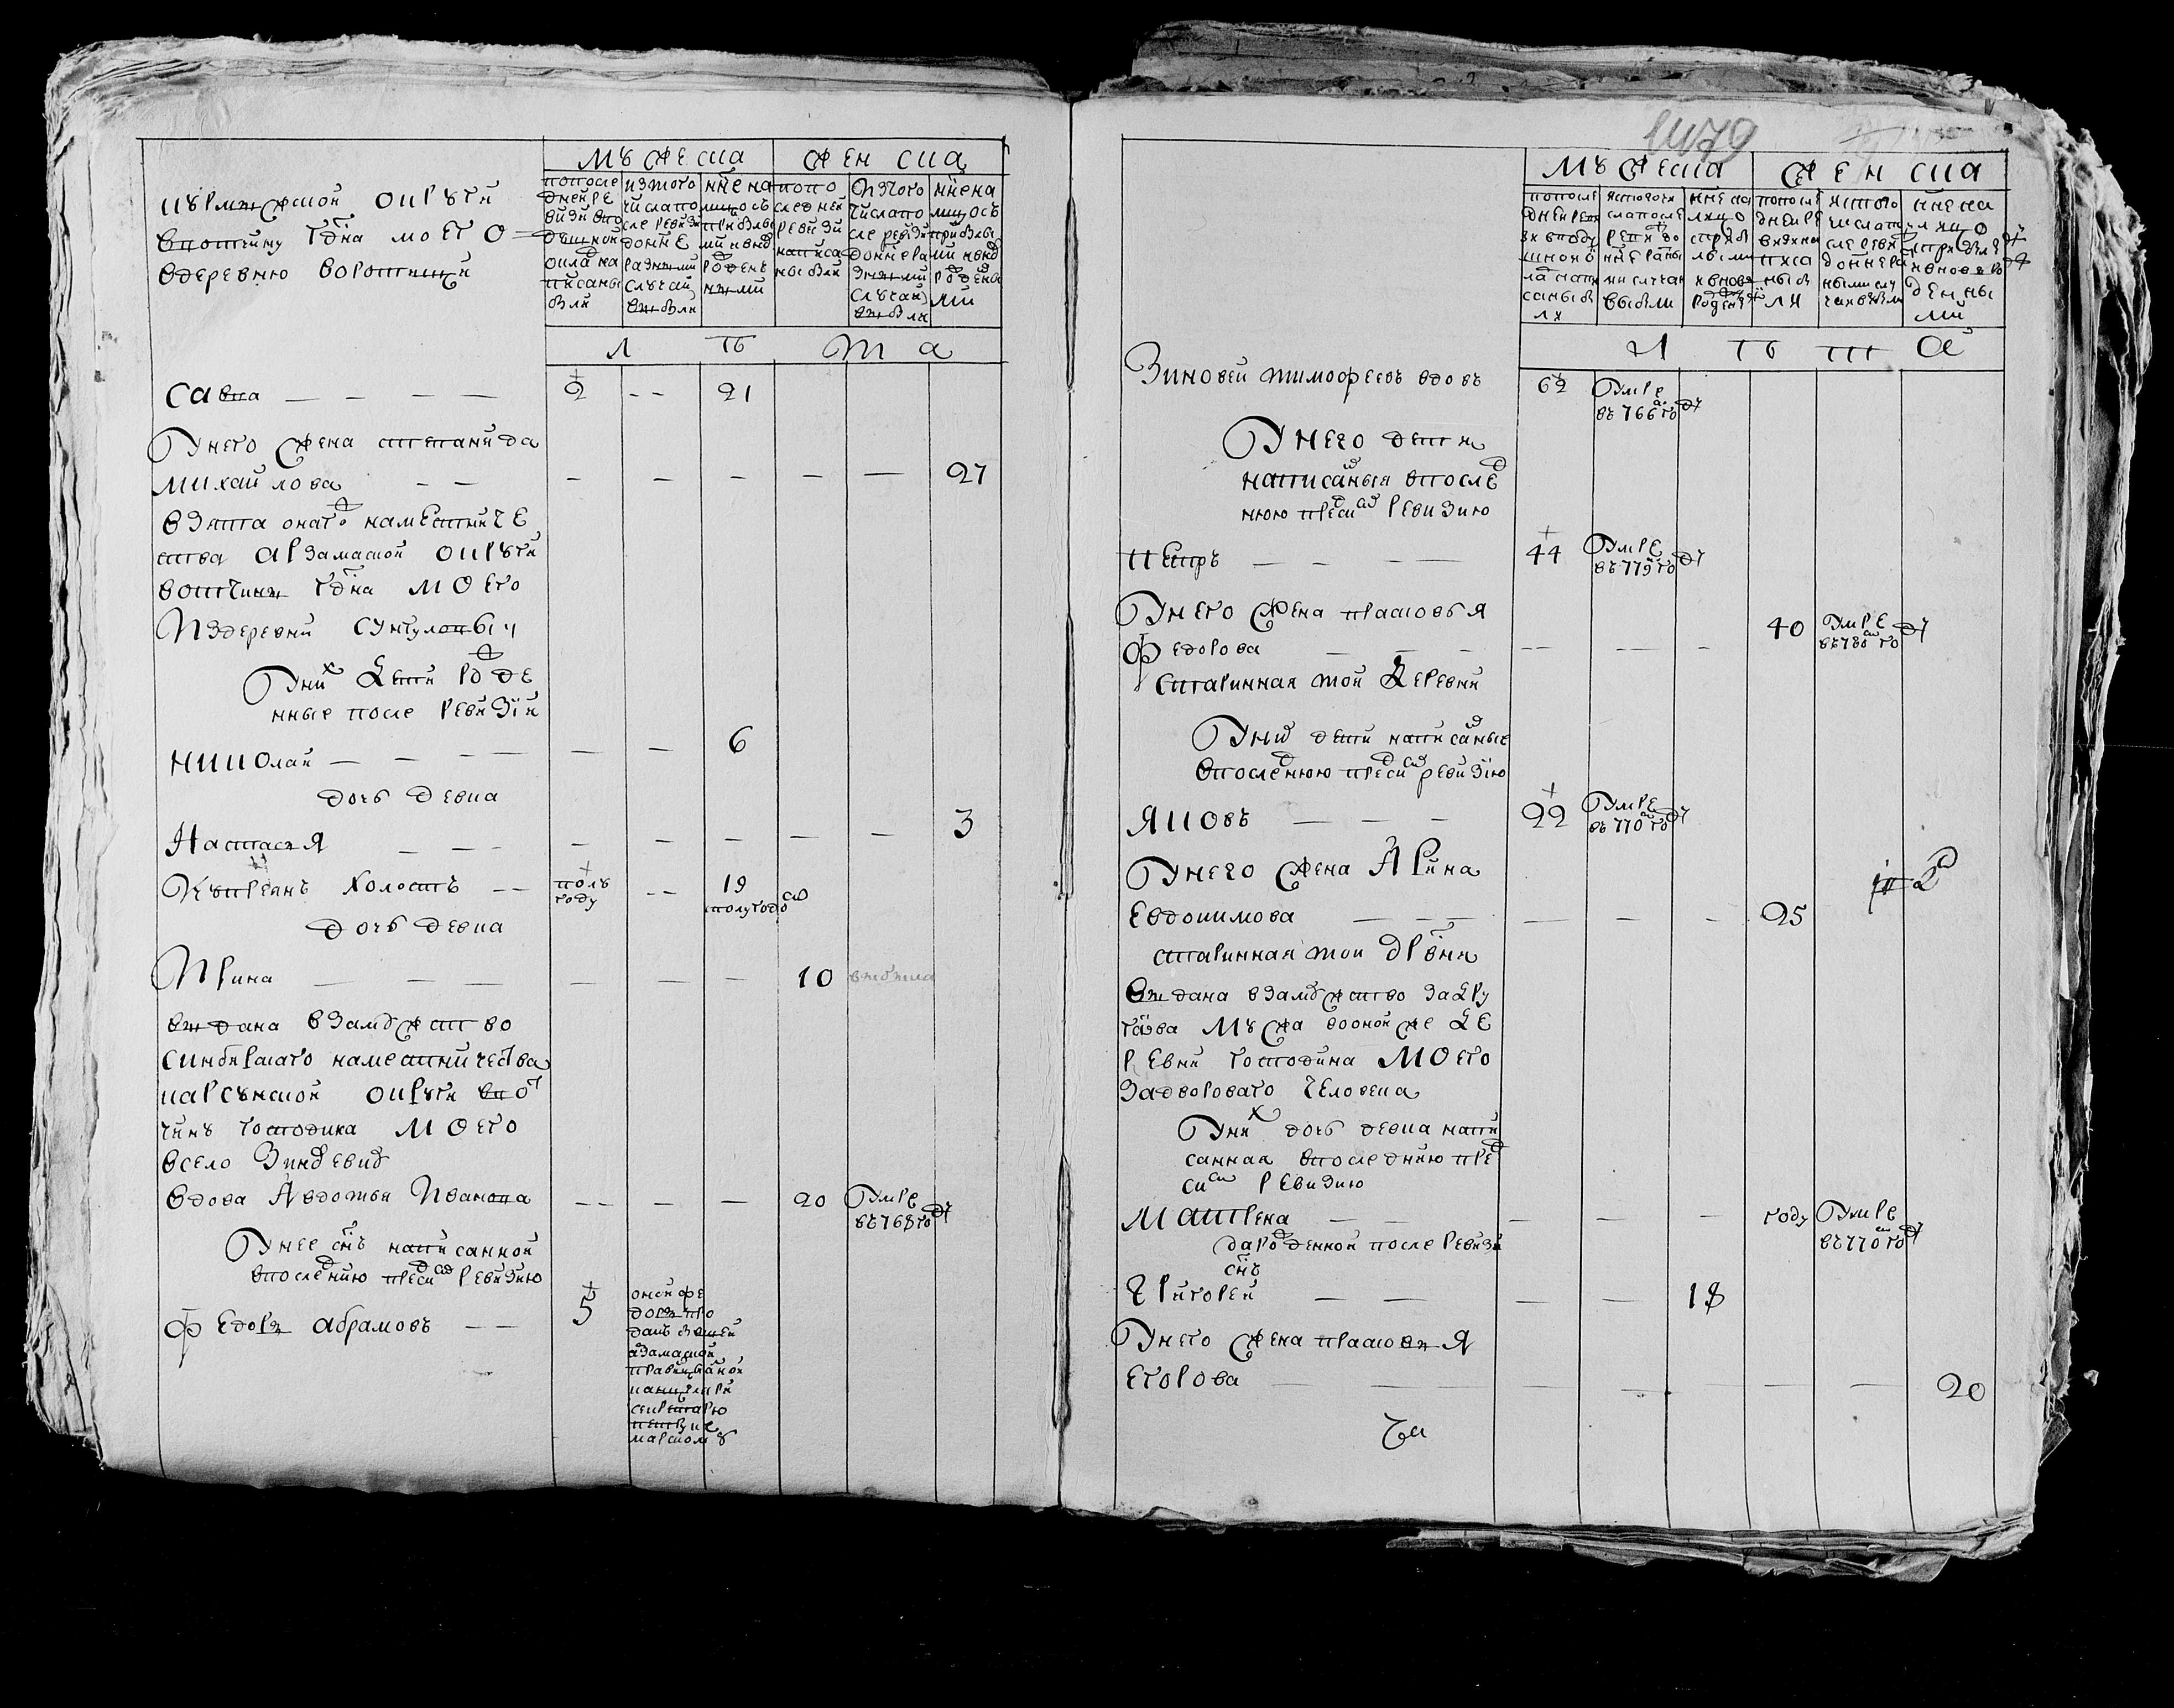 мужеска женска
курмыжской округи
вотчину гдна моего
вдеревню воротники
попоследней ревизи вподушной оклад написаны были
изтого числа после ревизи доннѣ разными случаи выбыли
ннѣ налицо съ прибылыми и вновь рожденными
попоследней ревизи написаны были
изтого числа после ревизи доннѣ разными случаи выбыли
ннѣ налицо съ прибылыми и вновь рожденными
лѣта
савка — — — — 2 -- 21
Унего жена степанида
михайлова — — — — — — — 27
взята онаго наместниче
ства арзамаской округи
вотчины гдна моего
Издеревни
Уних дети рожде
нные после ревизии
николай — — — — — — 6
дочь девка
Настасья — — — — — — — — 3
Куприянъ холостъ -- полу году -- 19 сполугодо
дочь девка
Ирина — — — — — — 10 выбыла
выдана взамужство
синбирскаго наместничества
карсунской округи вот
чину господина моего
всело
вдова Авдотья Иванова -- — — 20 Умре въ768 году
Унее снъ написанной
впоследнюю предсию ревизию
федоръ абрамовъ -- 5 оной федоръ проданъ
арзамаской
правинцыаной
канцеляри
секретарю
1479
мужеска женска
попоследней ревизи вподушной оклад написаны были
изтого числа после ревизи доннѣ разными случаи выбыли
ннѣ налицо сприбылыми и вновь рожденными
попоследней ревизи написаны были
изтого числа после ревизи доннѣ разными случаи выбыли
ннѣ налицо сприбылыми и вновь рожденными
лѣта
Зиновей тимофеевъ вдовъ 62 Умре въ 766 году
Унего дети
написаныя впослед
нюю предсию ревизию
Петръ — — — — 44 Умре въ 779 году
Унего жена прасковья
федорова — — — -- — 40 Умре въ780 году
старинная той деревни
Уних дети написаныя
впоследнюю предсию ревизию
Яковъ — — — 22 Умре въ 770 году
Унего жена Арина
Евдокимова — — — — — — 25
старинная той дрвни
выдана взамужство задру
гова мужа воонойже де
ревни господина моего
задворовато человека
Уних дочь девка напи
санная впоследнюю пред
сию ревизию
Матрена — — — — — году Умре въ770 году
да рожденной после ревизи
снъ
Григорей — — — — 18
Унего жена прасковья
егорова — — — — — — — 20